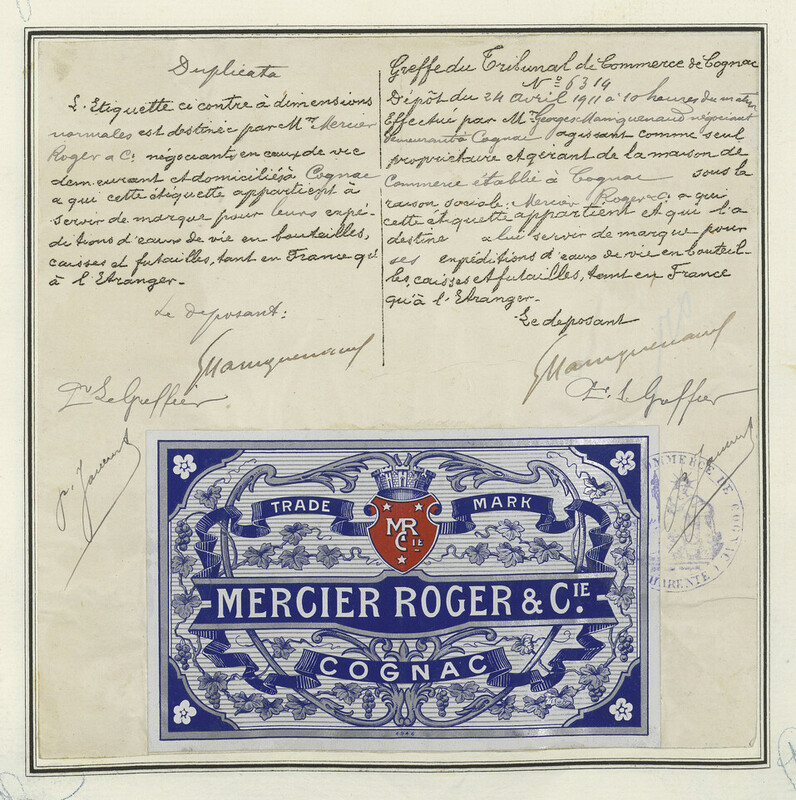 Duplicata
L'Etiquette ci contre à dimensions
normales est destinée par Mrs Mercier
Roger & Co. négociants en eaux de vie
demeurant et domiciliés à Cognac
a qui cette étiquette appartient à
servir de marque pour leurs expé-
ditions d'eaux de vie en bouteilles,
caisses et futailles, tant en France qu'
à l'Etranger.
Le deposant:
Pr Le Greffier
Greffe du Tribunal de Commerce de Cognac
No 6314
Dépôt du 24 Avril 1911 à 10 heures du matin
Effectué par Mr Georges Mamquenaud négociant
demeurant à Cognac agissant comme seul
propriétaire et gérant de la maison de
Commerce établie à Cognac sous la
raison sociale: Mercier Roger & Co. a qui
cette étiquette appartient et qui l'a
destine a lui servir de marque pour
ses expéditions d'eaux de vie en bouteil-
les, caisses et futailles, tant en France
qu'à l'Etranger.
Le deposant
Pr. Le Greffier
TRADE MARK
MR
CIE
MERCIER ROGER & CIE.
COGNAC
COMMERCE DE COGNAC
CHARENTE